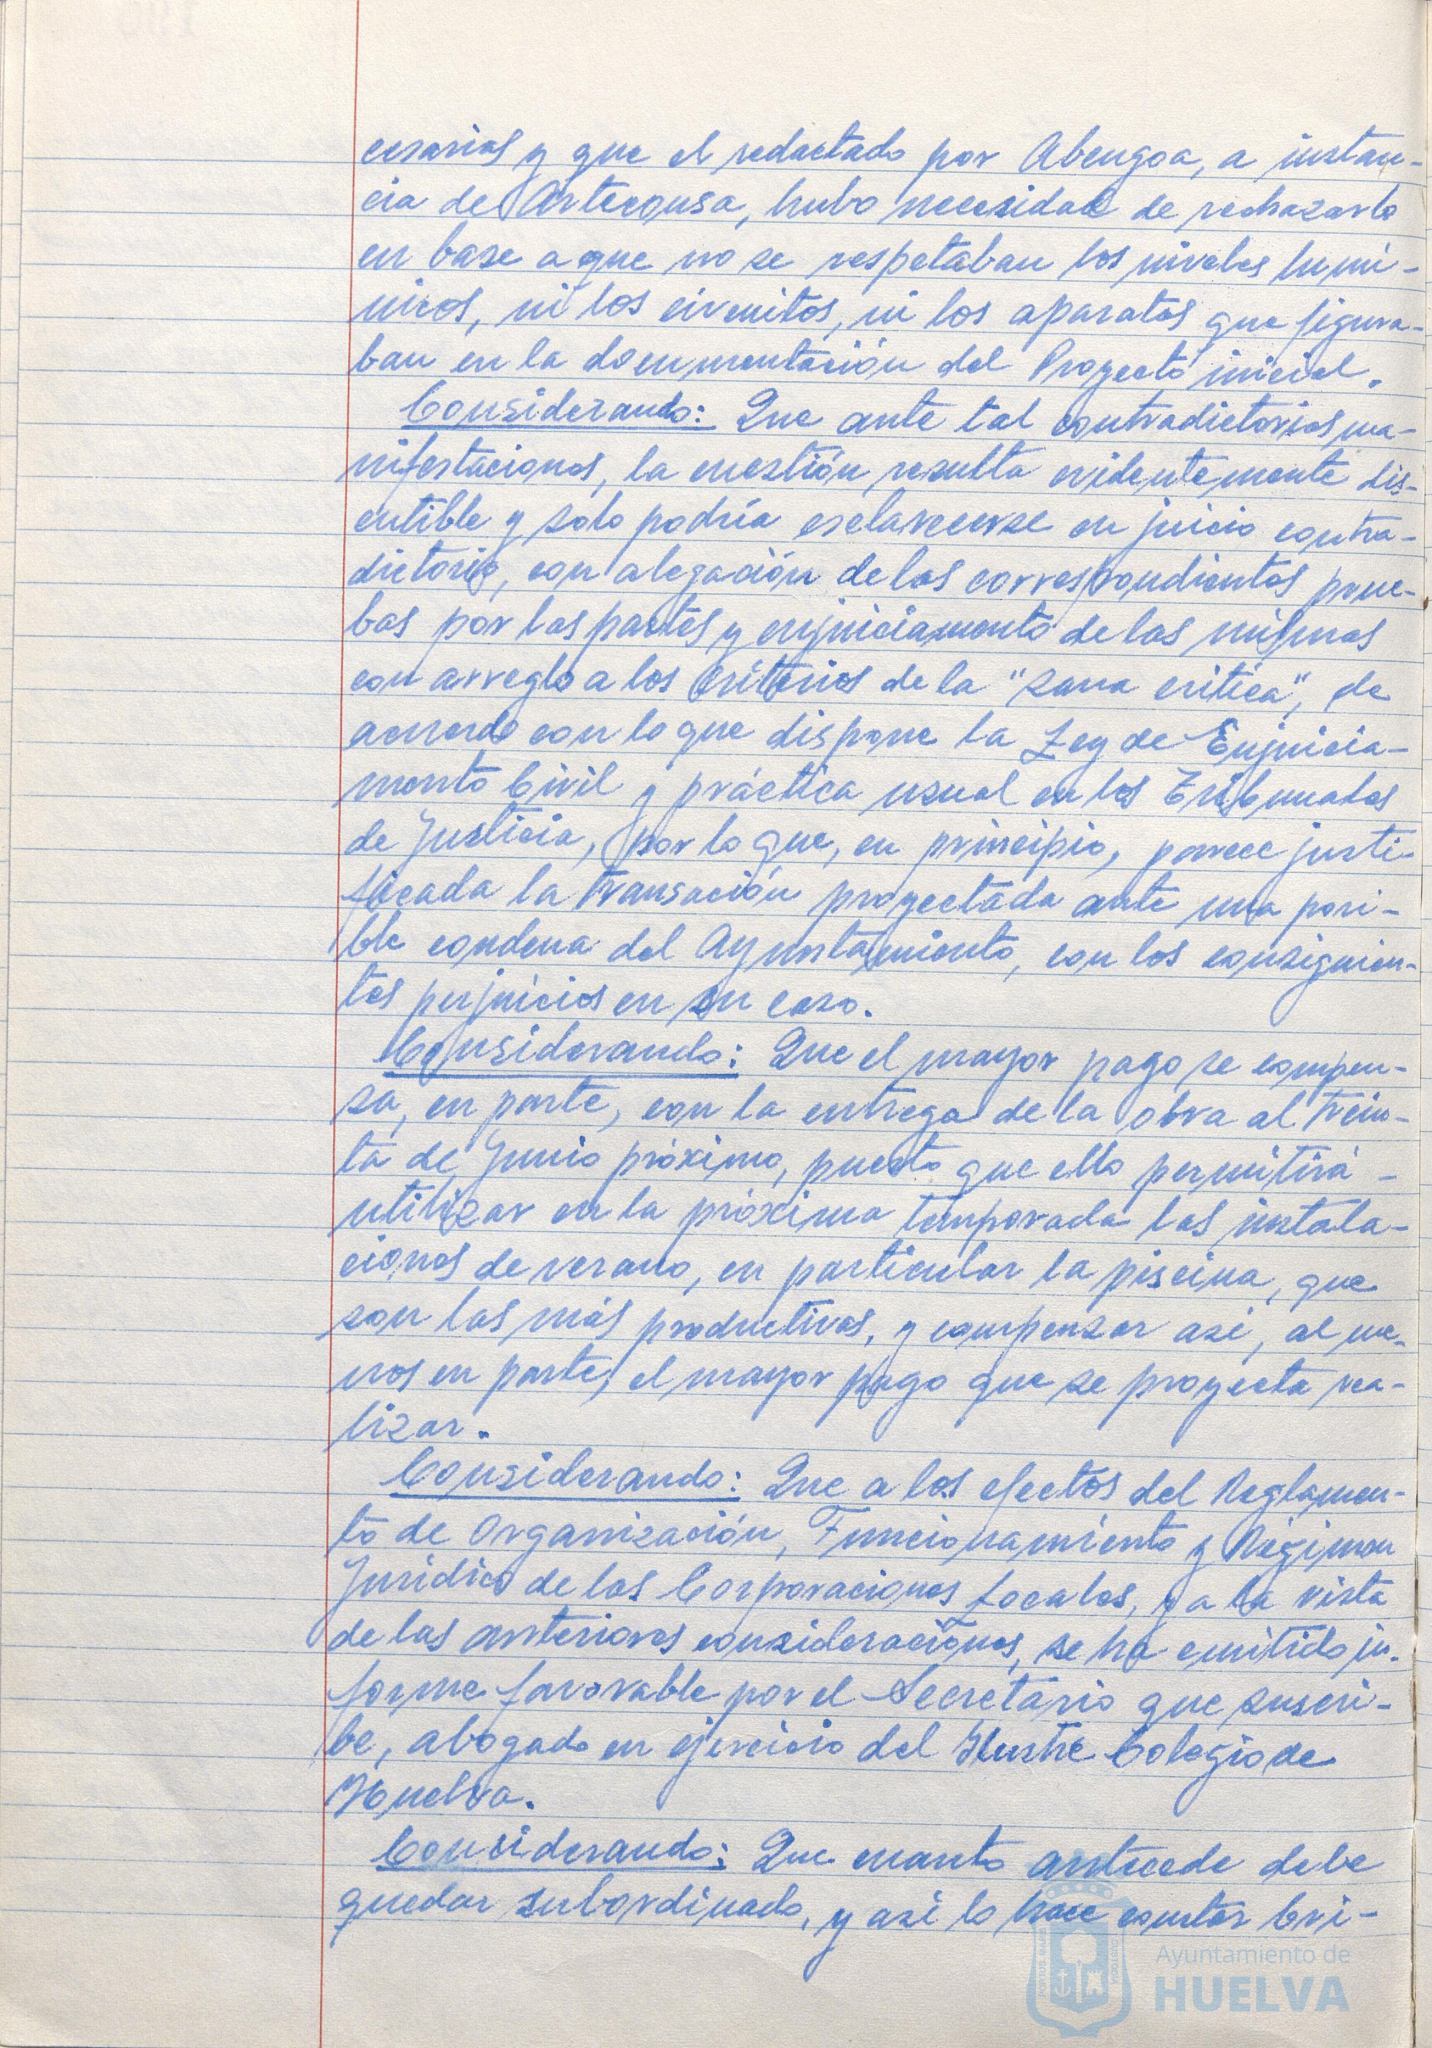 cesarias y que el redactado por Abengoa, a instan-
cia de Artecousa, hubo necesidad de rechazarlo
en base a que no se respetaban los niveles lumí-
nicos, ni los circuitos, ni los aparatos que figura-
ban en la documentación del Proyecto inicial.
Considerando: Que ante tal contradictorias ma-
nifestaciones, la cuestión resulta evidentemente dis-
cutible y solo podría esclarecerse en juicio contra-
dictorio, con alegación de las correspondientes prue-
bas por las partes y enjuiciamiento de las mismas
con arreglo a los criterios de la "sana critica", de
acuerdo con lo que dispone la Ley de Enjuicia-
miento Civil y práctica usual en los Tribunales
de Justicia, por lo que, en principio, parece justi-
ficada la transación proyectada ante una posi-
ble condena del Ayuntamiento, con los consiguien-
tes perjuicios en su caso.
Considerando: Que el mayor pago se compen-
sa, en parte, con la entrega de la obra al trein-
ta de Junio próximo, puesto que ello permitirá
utilizar en la próxima temporada las instala-
ciones de verano, en particular la piscina, que
son las más productivas, y compensar así, al me-
nos en parte, el mayor pago que se proyecta rea-
lizar.
Considerando: Que a los efectos del Reglamen-
to de Organización, Funcionamiento y Régimen
Jurídico de las Corporaciones Locales, y a la vista
de las anteriores consideraciones, se ha emitido in-
forme favorable por el Secretario que suscri-
be, abogado en ejercicio del Ilustre Colegio de
Huelva.
Considerando: Que cuanto antecede debe
quedar subordinado, y así lo hace constar bri-
Ayuntamiento de
HUELVA